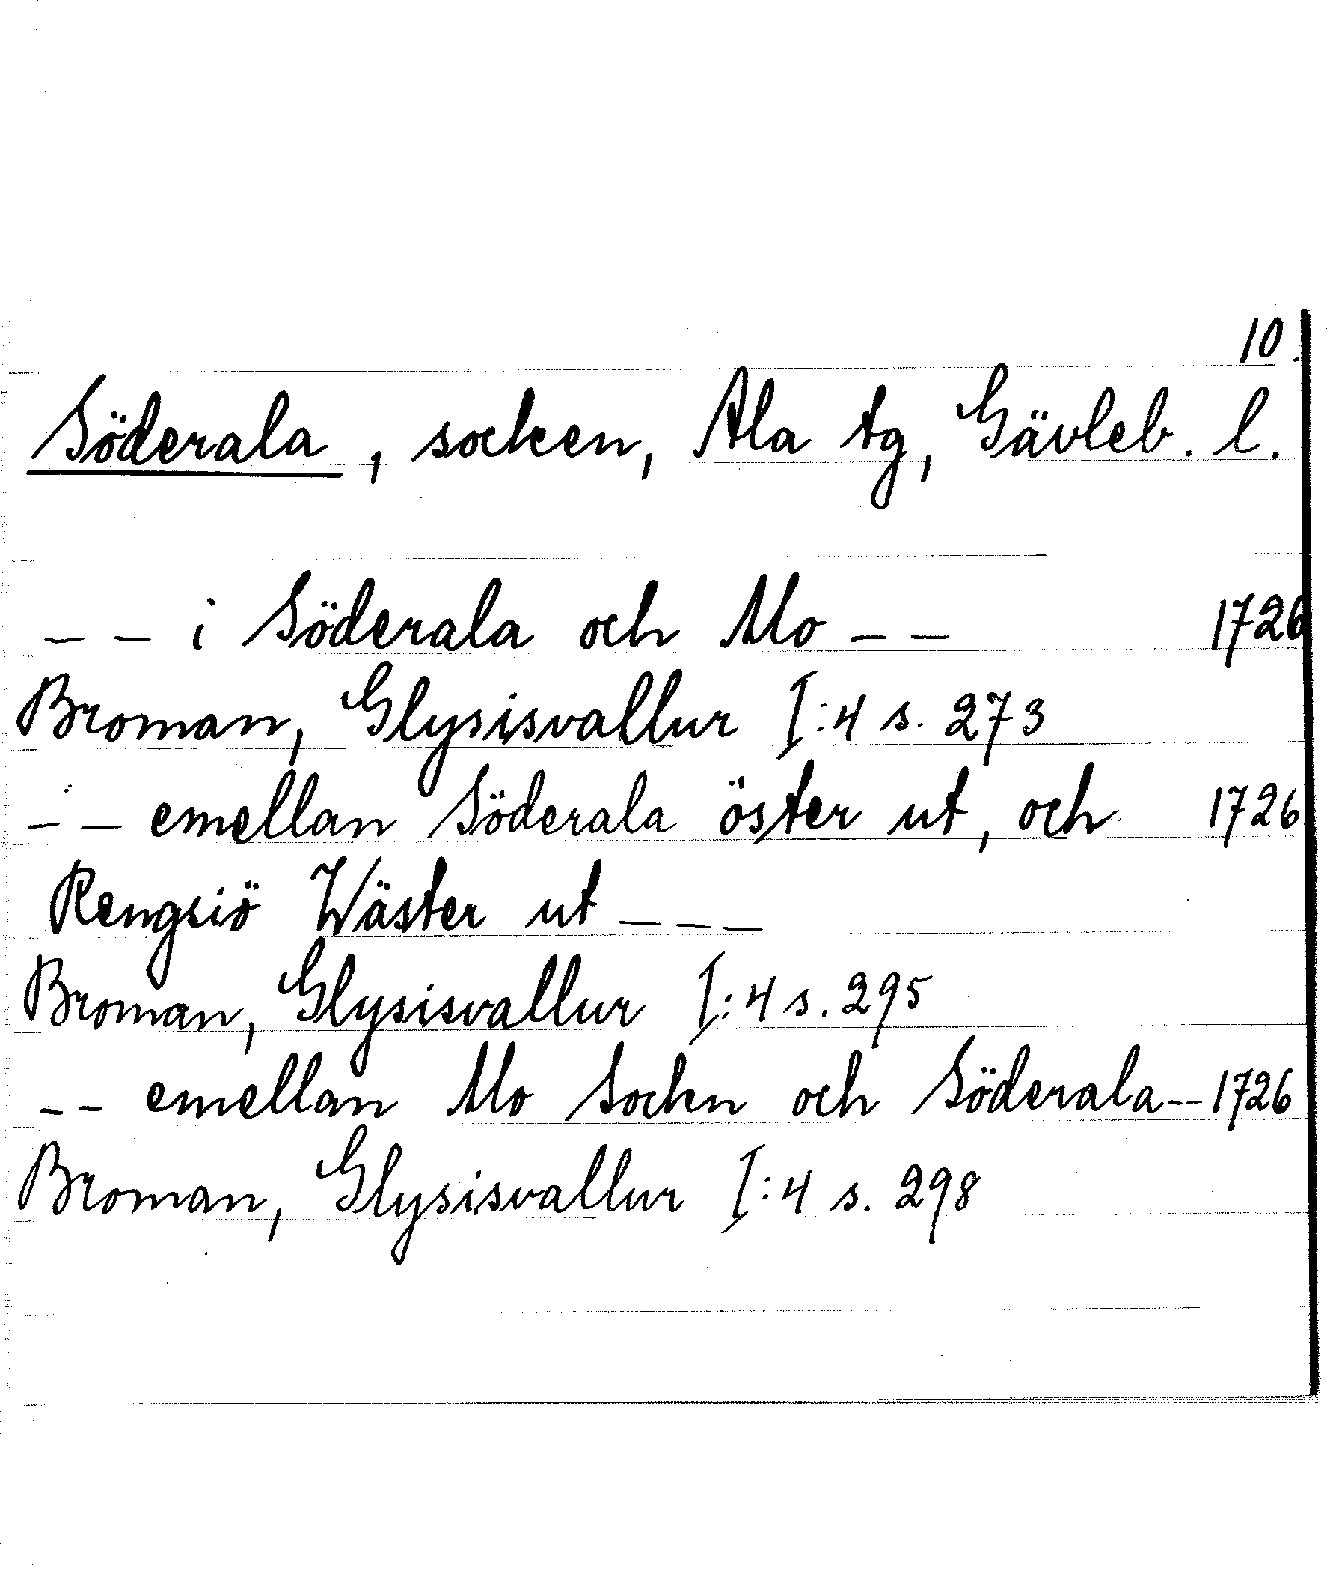 10.
Söderala, socken, Ala tg, Gävleb. l.
-- i Söderala och Mo -- 1726
Broman, Glysisvallur I:4 s. 273
-- emellan Söderala öster ut, och 1726
Rengsiö Wäster ut ---
Broman, Glysisvallur I:4 s. 295
-- emellan Mo Sockn och Söderala -- 1726
Broman, Glysisvallur I:4 s. 298